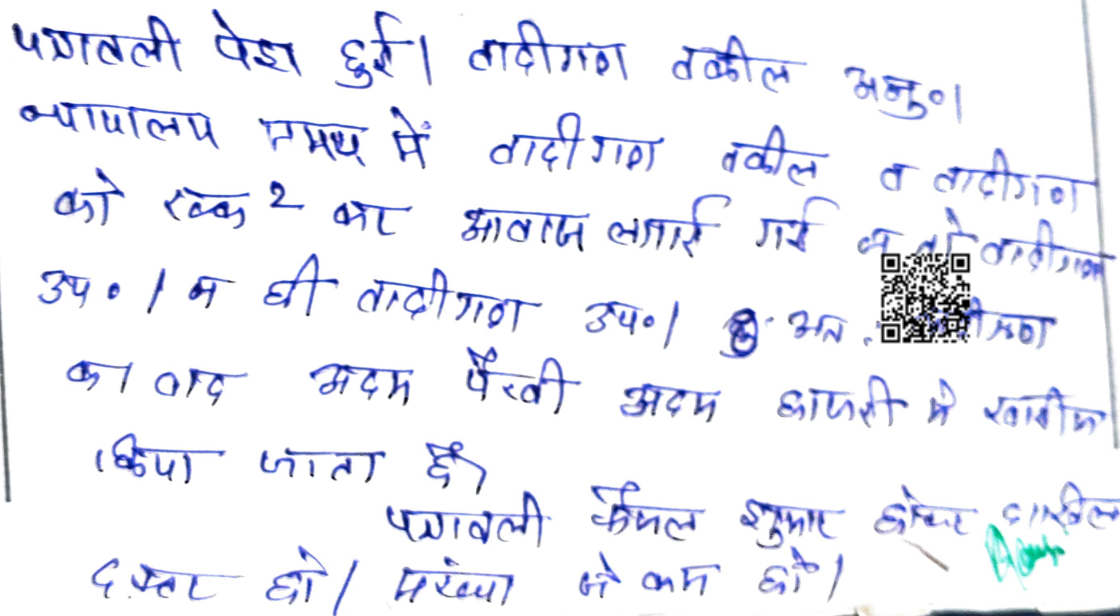 पत्रावली पेश हुई। वादीगण वकील अनु०।
न्यायालय समय में वादीगण वकील व वादीगण
को रूक २ कर आवाज लगाई गई न तो वादीगण
उप०। न ही वादीगण उप०। अतः वादीगण
का वाद अदम पैरवी अदम हाजरी मे खारीज
किया जाता है।
पत्रावली फैसल शुमार होकर दाखिल
दफ्तर हो। संख्या से कम हो।